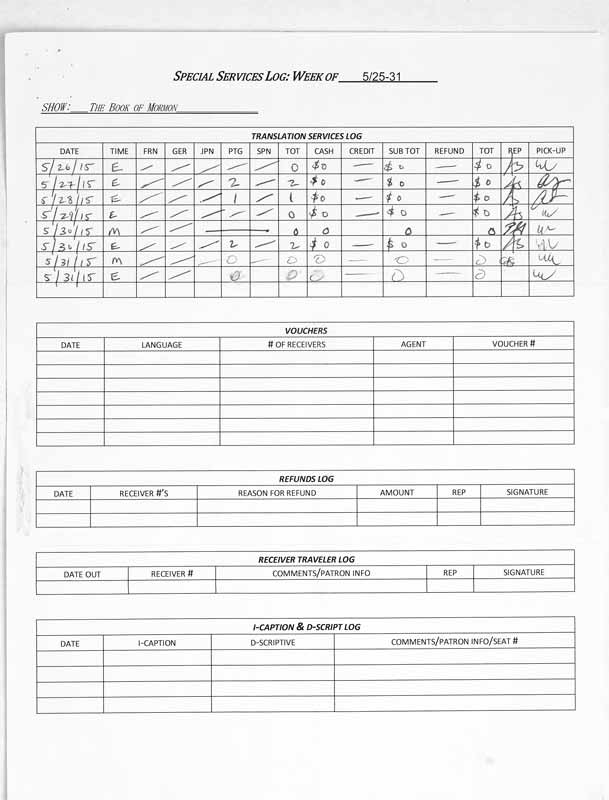 SPECIAL SERVICES LOG: WEEK OF 5/25-31
SHOW: THE BOOK OF MORMON
TRANSLATION SERVICES LOG
DATE TIME FRN GER JPN PTG SPN TOT CASH CREDIT SUB TOT REFUND TOT REP PICK-UP
5/26/15 E — — — — — 0 $0 — $0 — $0 AS
5/27/15 E — — — 2 — 2 $0 — $0 — $0 AS
5/28/15 E — — — 1 — 1 $0 — $0 — $0 AS
5/29/15 E — — — — — 0 $0 — $0 — $0 AS
5/30/15 M — — — 0 0 0 0
5/30/15 E — — — 2 — 2 $0 — $0 — $0 AS
5/31/15 M — — — 0 — 0 0 — 0 — 0
5/31/15 E — — 0 0 0 — 0 — 0
VOUCHERS
DATE LANGUAGE # OF RECEIVERS AGENT VOUCHER #
REFUNDS LOG
DATE RECEIVER #'S REASON FOR REFUND AMOUNT REP SIGNATURE
RECEIVER TRAVELER LOG
DATE OUT RECEIVER # COMMENTS/PATRON INFO REP SIGNATURE
I-CAPTION & D-SCRIPT LOG
DATE I-CAPTION D-SCRIPTIVE COMMENTS/PATRON INFO/SEAT #